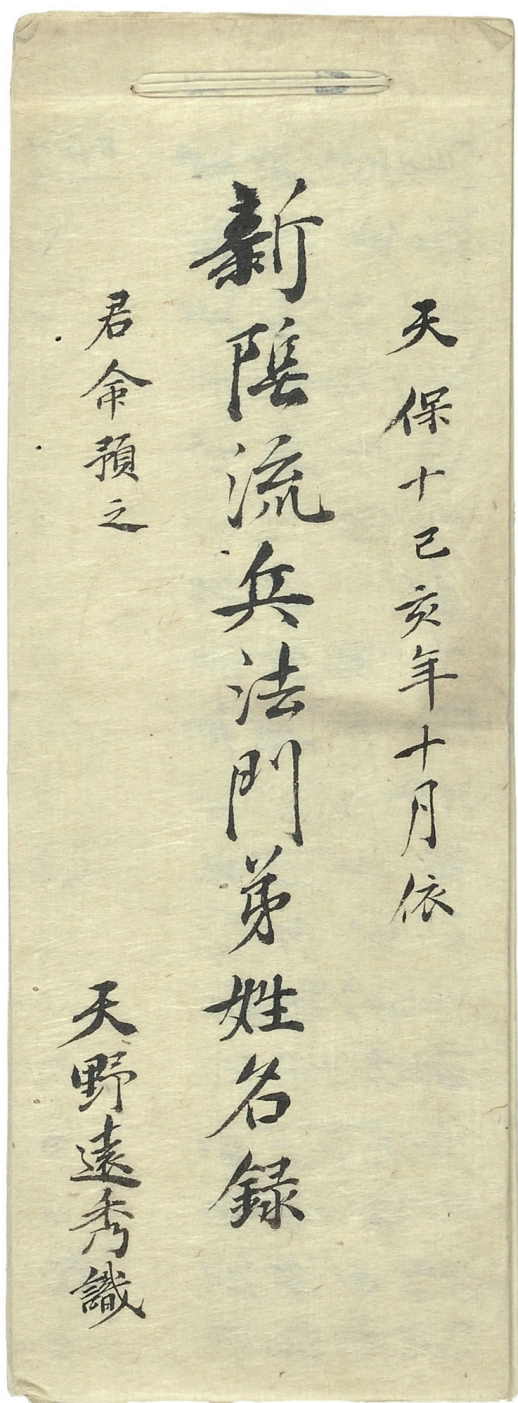 天保十己亥年十月依
新陰流兵法門弟姓名録
君命預之
天野遠秀識